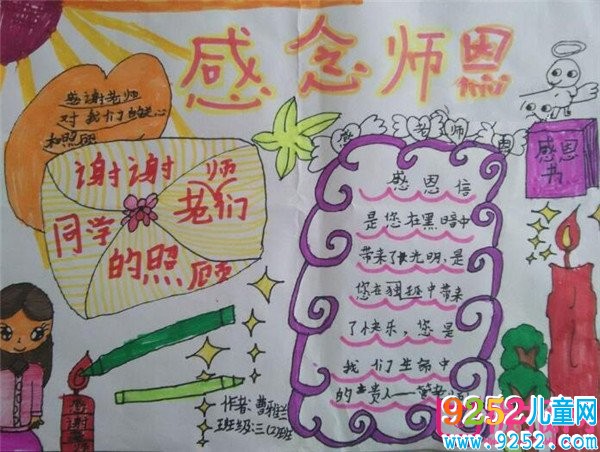 感念师恩
感谢老师
对我们的关心
和照顾
谢谢老师们
同学
的照顾
感老师恩
感恩书
感恩信
是您在黑暗中
带来了光明,是
您在班中带来
了快乐,您是
我们生命中
的贵人——
作者:曹雅兰
班级:三(2)班
9252儿童网
www.9252.com